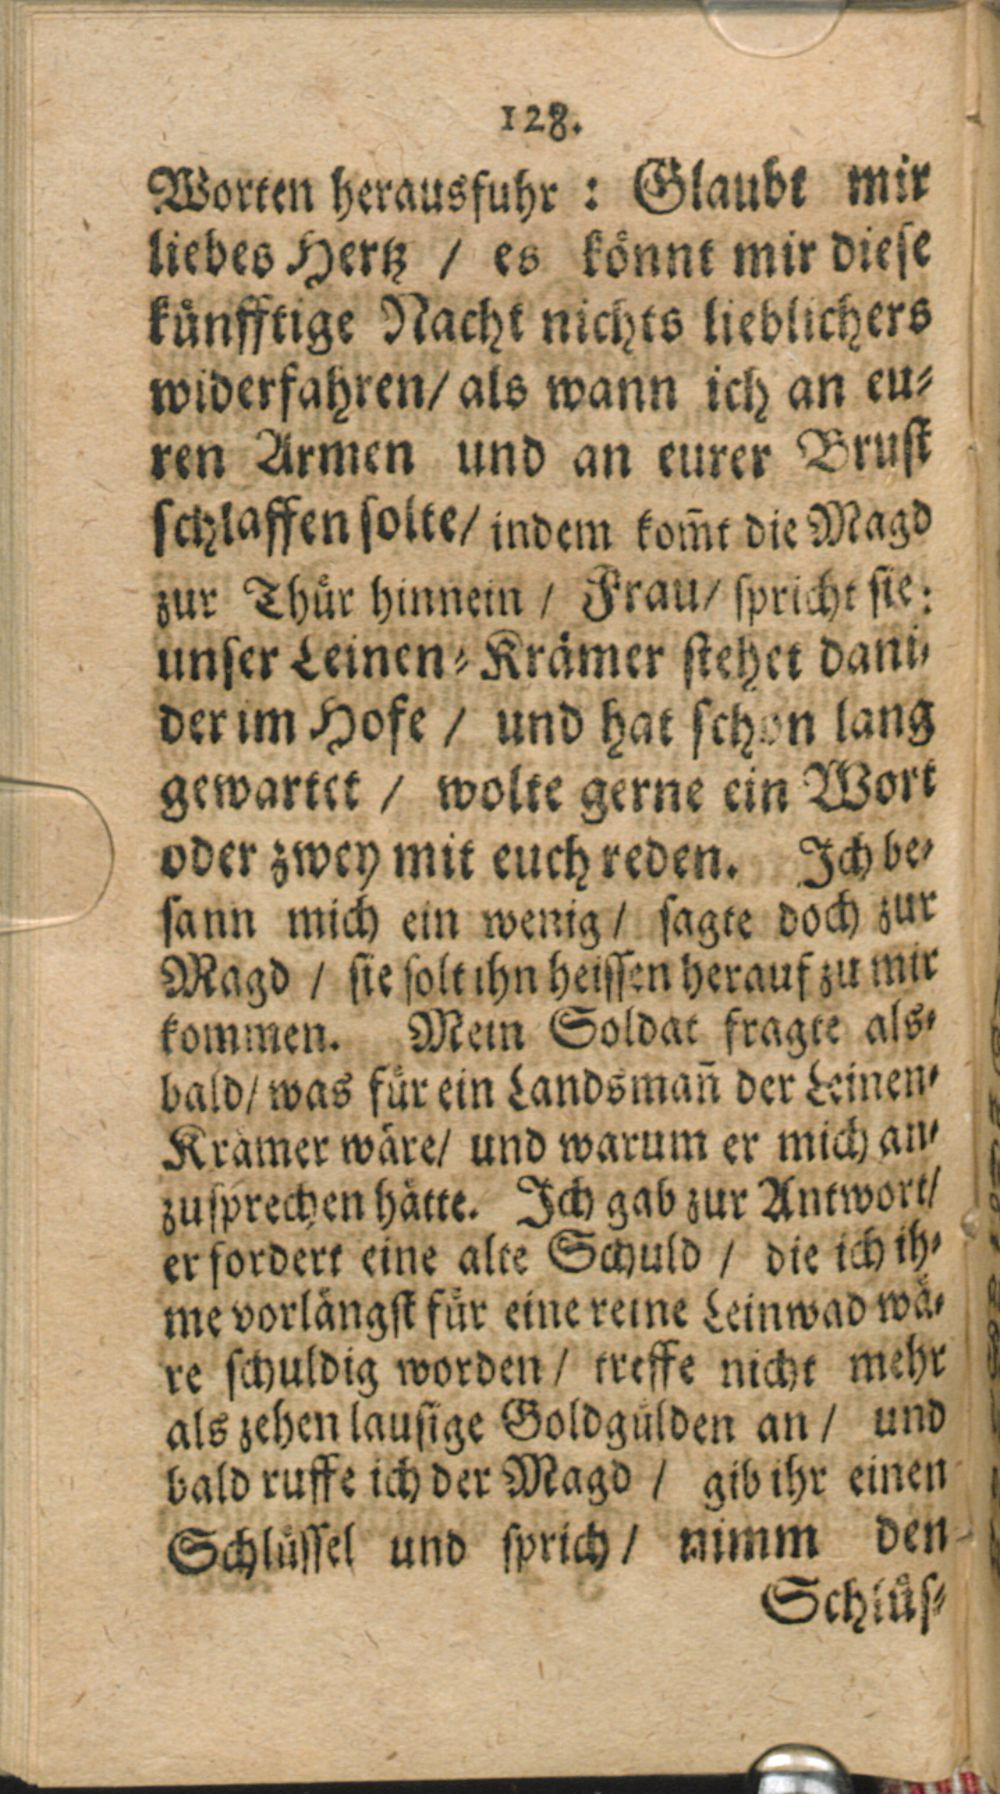 128.
Worten herausfuhr : Glaubt mir
liebes Hertz / es könnt mir diese
künfftige Nacht nichts lieblichers
widerfahren/ als wann ich an eu-
ren Armen und an eurer Brust
schlaffen solte/ indem kom̃t die Magd
zur Thür hinnein / Frau/ spricht sie:
unser Leinen-Krämer stehet dani-
der im Hofe / und hat schon lang
gewartet / wolte gerne ein Wort
oder zwey mit euch reden. Ich be-
sann mich ein wenig / sagte doch zur
Magd / sie solt ihn heissen herauf zu mir
kommen. Mein Soldat fragte als-
bald/ was für ein Landsmañ der Leinen-
Krämer wäre/ und warum er mich an-
zusprechen hätte. Ich gab zur Antwort/
er fordert eine alte Schuld / die ich ih-
me vorlängst für eine reine Leinwad wä-
re schuldig worden / treffe nicht mehr
als zehen lausige Goldgülden an / und
bald ruffe ich der Magd / gib ihr einen
Schlüssel und sprich / nimm den
Schlüs-